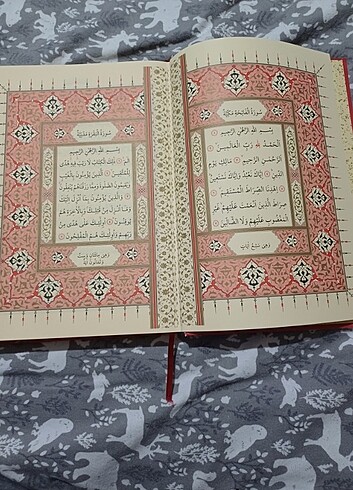 سُورَةُ الْفَاتِحَةِ مَكِّيَّةٌ
بِسْمِ اللّٰهِ الرَّحْمٰنِ الرَّحِيمِ
اَلْحَمْدُ لِلّٰهِ رَبِّ الْعَالَمِينَ
اَلرَّحْمٰنِ الرَّحِيمِ مَالِكِ يَوْمِ
الدِّينِ اِيَّاكَ نَعْبُدُ وَاِيَّاكَ نَسْتَعِينُ
اِهْدِنَا الصِّرَاطَ الْمُسْتَقِيمَ
صِرَاطَ الَّذِينَ اَنْعَمْتَ عَلَيْهِمْ غَيْرِ
الْمَغْضُوبِ عَلَيْهِمْ وَلَا الضَّالِّينَ
وَهِيَ سَبْعُ اٰيَاتٍ
سُورَةُ الْبَقَرَةِ مَدَنِيَّةٌ
بِسْمِ اللّٰهِ الرَّحْمٰنِ الرَّحِيمِ
الٓمٓ ذٰلِكَ الْكِتَابُ لَا رَيْبَ فِيهِ هُدًى
لِلْمُتَّقِينَ اَلَّذِينَ يُؤْمِنُونَ بِالْغَيْبِ
وَيُقِيمُونَ الصَّلٰوةَ وَمِمَّا رَزَقْنَاهُمْ يُنْفِقُونَ
وَالَّذِينَ يُؤْمِنُونَ بِمَا اُنْزِلَ اِلَيْكَ
وَمَا اُنْزِلَ مِنْ قَبْلِكَ وَبِالْاٰخِرَةِ هُمْ
يُوقِنُونَ اُولٰئِكَ عَلٰى هُدًى مِنْ
رَبِّهِمْ وَاُولٰئِكَ هُمُ الْمُفْلِحُونَ
وَهِيَ مِائَتَانِ وَسِتٌّ
وَثَمَانُونَ اٰيَةً